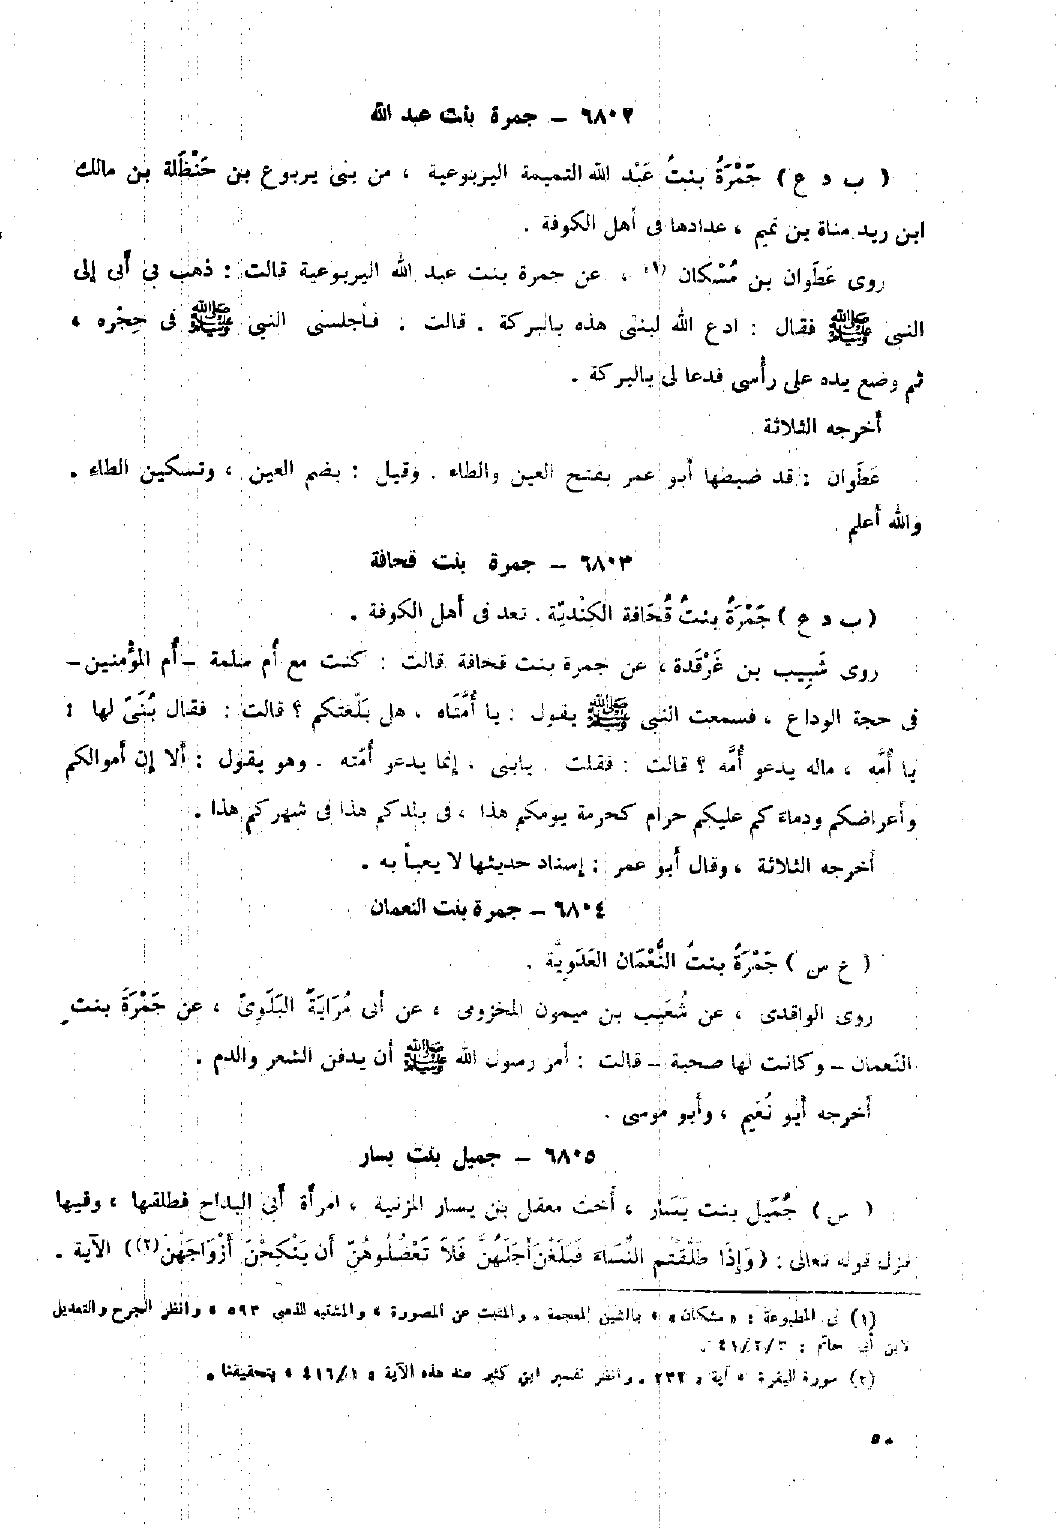 ٦٨٠٢ – جمرة بنت عبد الله
( ب د ع ) جَمْرَةُ بنتُ عَبْد الله التميمة اليربوعية ، من بنى يربوع بن حَنْظَلة بن مالك
ابن زيد مناة بن تميم ، عدادها فى أهل الكوفة .
روى عَطَوان بن مُسْكان (١) ، عن جمرة بنت عبد الله اليربوعية قالت : ذهب بى أبى إلى
النبى ﷺ فقال : ادع الله لبنتى هذه بالبركة . قالت : فأجلسنى النبى ﷺ فى حِجْره ،
ثم وضع يده على رأسى فدعا لى بالبركة .
أخرجه الثلاثة .
عَطَوان : قد ضبطها أبو عمر بفتح العين والطاء . وقيل : بضم العين ، وتسكين الطاء .
والله أعلم .
٦٨٠٣ – جمرة بنت قحافة
( ب د ع ) جَمْرَةُ بنتُ قُحَافة الكِنْديّة . تعد فى أهل الكوفة .
روى شَبِيب بن غَرْقَدة ، عن جمرة بنت قحافة قالت : كنت مع أم سلمة – أم المؤمنين –
فى حجة الوداع ، فسمعت النبى ﷺ يقول : يا أُمَّتَاه ، هل بَلّغتكم ؟ قالت : فقال بُنَىّ لها :
يا أُمَّه ، ماله يدعو أُمَّه ؟ قالت : فقلت : يابنى ، إنما يدعو أُمّته . وهو يقول : ألا إن أموالكم
وأعراضكم ودماءكم عليكم حرام كحرمة يومكم هذا ، فى بلدكم هذا فى شهركم هذا .
أخرجه الثلاثة ، وقال أبو عمر : إسناد حديثها لا يعبأ به .
٦٨٠٤ – جمرة بنت النعمان
( ع س ) جَمْرَةُ بنتُ النُّعْمَان العَدَوِيَّة .
روى الواقدى ، عن شُعَيب بن ميمون المخزومى ، عن أبى مُرَايَةَ البَلَوِىّ ، عن جَمْرَةَ بنت
النعمان – وكانت لها صحبة – قالت : أمر رسول الله ﷺ أن يدفن الشعر والدم .
أخرجه أبو نُعَيم ، وأبو موسى .
٦٨٠٥ – جميل بنت يسار
( س ) جُمَيل بنت يَسَار ، أخت معقل بن يسار المزنية ، امرأة أبى البداح فطلقها ، وفيها
نزل قوله تعالى : ( وَإِذَا طَلَّقْتُم النِّسَاءَ فَبَلَغْنَ أَجَلَهُنَّ فَلاَ تَعْضُلُوهُنّ أَن يَنْكِحْنَ أَزْوَاجَهُنّ(٢)) الآية .
(١) فى المطبوعة : « مشكان » ، بالشين المعجمة . والمثبت عن المصورة ، والمشتبه للذهبى ٥٩٣ ، وانظر الجرح والتعديل
لابن أبى حاتم : ٤١/٢/٣ .
(٢) سورة البقرة ، آية ، ٢٣٢ . وانظر تفسير ابن كثير عند هذه الآية ، ٤١٦/١ ، بتحقيقنا .
٥٠